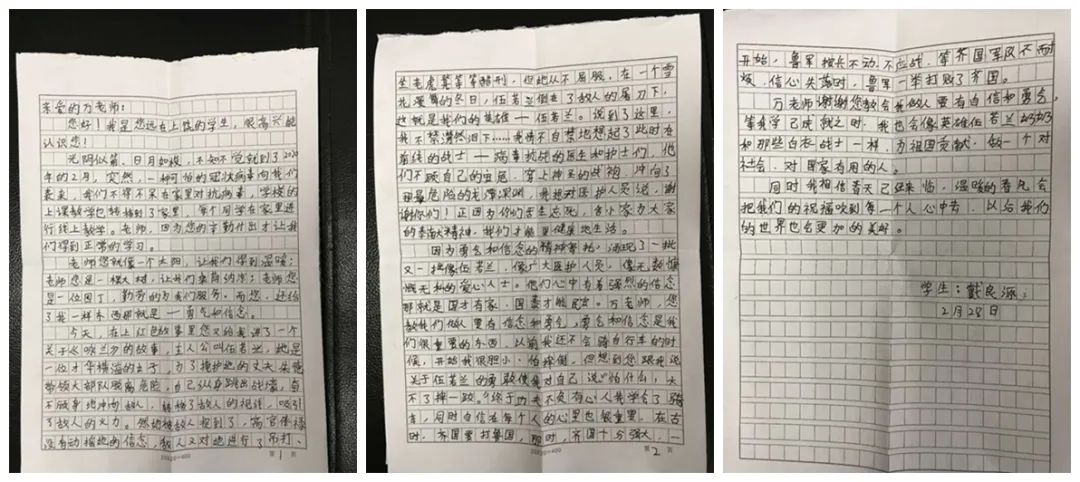 亲爱的万老师：
您好！我是您远在上饶的学生，很高兴能
认识您！
光阴似箭，日月如梭，不知不觉就到了2020
年的2月，突然，一种可怕的冠状病毒向我们
袭来，我们不得不呆在家里对抗病毒，学校的
上课教学也转移到了家里，每个同学在家里进
行线上教学。老师，因为您的辛勤付出才让我
们得到正常的学习。
老师您就像一个太阳，让我们得到温暖；
老师您是一棵大树，让我们乘荫纳凉；老师您
是一位园丁，勤劳的为我们服务。而您，还给
了我一样东西那就是——勇气和信念。
今天，在上红色故事里您又给我讲了一个
关于《咏兰》的故事，主人公叫伍若兰，她是
一位才华横溢的女子，为了掩护她的丈夫朱德
带领大部队脱离危险，自己纵身跳出战壕，奋
不顾身地冲向敌人，转移了敌人的视线，吸引
了敌人的火力。然后被敌人抓到了，高官俸禄
没有动摇她的信念，敌人又对她进行了吊打、
20×20=400
第1页
坐老虎凳等等酷刑，但她从不屈服，在一个雪
花漫舞的冬日，伍若兰倒在了敌人的屠刀下，
这就是我们的英雄——伍若兰。说到了这里，
我不禁潸然泪下……我情不自禁地想起了此时在
前线的战士——病毒抗战的医生和护士们，他
们不顾自己的安危，穿上神圣的战袍，冲向了
那最危险的龙潭深渊，我想对医护人员说，谢
谢你们！正因为你们舍生忘死，舍小家为大家
的奉献精神，我们才能更健康地生活。
因为勇气和信念的精神寄托，涌现了一批
又一批像伍若兰，像广大医护人员，像无数慷
慨无私的爱心人士。他们心中有着强烈的信念
那就是国才有家，国泰才能民安。万老师，您
教我们做人要有信念和勇气，勇气和信念是我
们很重要的东西，以前我还不会骑自行车的时
候，开始我很胆小，怕摔倒，但想到您跟我说
关于伍若兰的勇敢使我对自己说“怕什么，大
不了摔一跤。”终于功夫不负有心人我学会了骑
车，同时自信在每个人的心里也很重要。在古
时，齐国要打鲁国，那时，齐国十分强大，一
20×20=400
第2页
开始，鲁军按兵不动，不应战，等齐国军队不耐
烦，信心失落时，鲁军一举打败了齐国。
万老师谢谢您教会我做人要有自信和勇气，
等我学己成就之时，我也会像英雄伍若兰奶奶
和那些白衣战士一样，为祖国贡献，做一个对
社会，对国家有用的人。
同时我相信春天已经来临，温暖的春风会
把我们的祝福吹到每一个人心中去，以后我们
的世界也会更加的美好。
学生：戴良源
2月28日